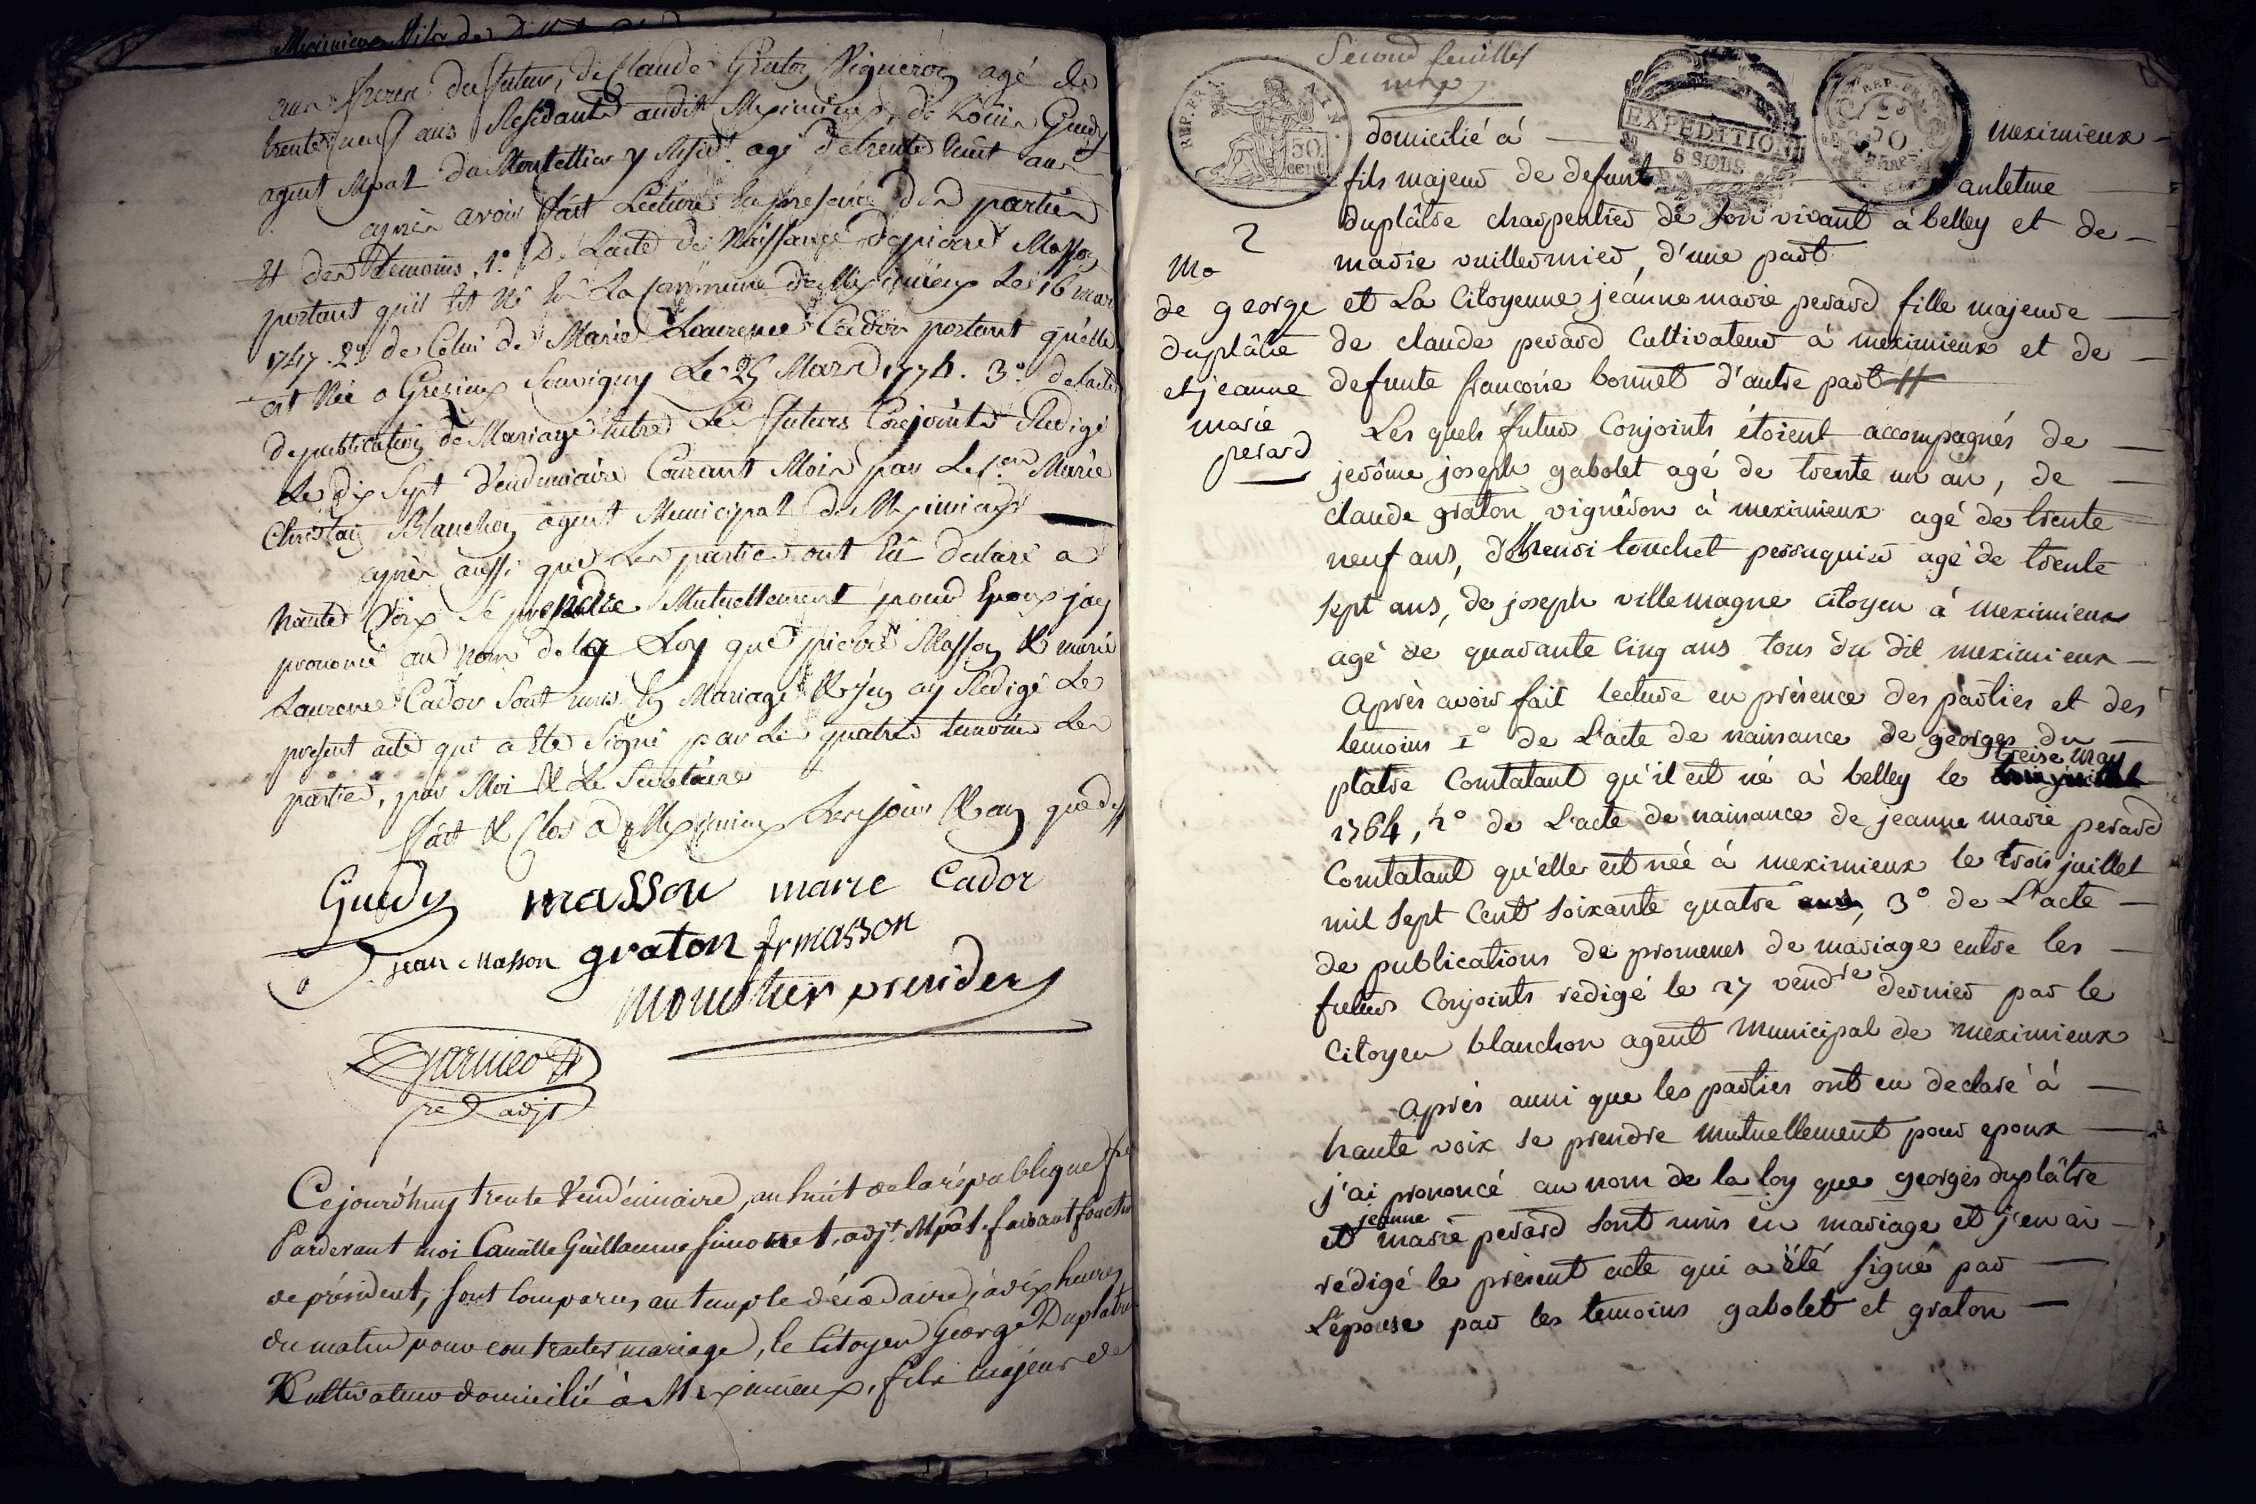 Meximieux
ans frere du futur, de Claude Graton Vigneron agé de
trente neuf ans Residants audit Meximieux, de Louis Guedy
agent Mpal du Montellier y Resid.t agé de trente huit ans
après avoir fait Lecture En presence des parties
Et des temoins, 1.º De Lacte de Naissance de pierre Masson
portant qu'il Est Né En La Commune de Meximieux Le 16 mars
1747. 2º de Celui de Marie Laurence Cador portant quelle
est Née a Grezieux Souvigny Le 25 Mars 1774. 3º de lacte
de publication de Mariage Entre Les futurs Conjoints Redigé
Le dix Sept Vendemiaire Courant Mois par Le c.en Marie
Blanchon agent Municipal de Meximieux
après aussi que Les parties ont Eu declaré a
haute Voix Se prendre Mutuellement pour Epoux jay
prononcé au Nom de la Loy que pierre Masson & marie
Laurence Cador Sont unis En Mariage & j'en ay Redigé Le
present acte qui a Eté Signé par Les quatre temoins Les
parties, par Moi & Le Secretaire
fait & Clos a Meximieux Les jour & an que dessus
Guedy masson marie Cador
jean Masson graton fr masson
Monithier president
Garnier
re adjt
Ce jourd'huy trente Vendémiaire, an huit de la république fr
Pardevant moi Camille Guillaume Simonet, adj.t Mpâl. faisant fonction
de président, sont comparus au temple décadaire, à dix heures
du matin pour contracter mariage, le Citoyen George Duplatre
Cultivateur domicilié à Meximieux, fils majeur de
Second feuillet
REP. FRA.
AIN.
50
cent
EXPEDITION
8 SOUS
REP. FRA.
domicilié à — meximieux —
fils majeur de defunt — antelme —
duplâtre charpentier de son vivant à belley et de —
marie vuillermier, d'une part
2
Mo
de george
duplâtre
et jeanne
marie
perard
et La Citoyenne jeanne marie perard fille majeure —
de claude perard Cultivateur à meximieux et de —
defunte francoise bonnet d'autre part
Les quels futurs Conjoints étoient accompagnés de —
jerôme joseph gabolet agé de trente un an, de —
claude graton vignêron à meximieux agé de trente
neuf ans, d'henri touchet perruquier agé de trente
sept ans, de joseph villemagne citoyen à meximieux
agé de quarante cinq ans tous du dit meximieux —
Après avoir fait lecture en présence des parties et des
temoins 1º de L'acte de naissance de georges du —
treise may
platre Constatant qu'il est né à belley le
1764, 2º de L'acte de naissance de jeanne marie perard
Constatant qu'elle est née à meximieux le trois juillet
mil sept Cent soixante quatre ans, 3º de L'acte —
de publications de promesses de mariage entre les —
futurs Conjoints redigé le 27 vendre dernier par le
Citoyen blanchon agent Municipal de meximieux
Après aussi que les parties ont eu declaré à —
haute voix se prendre mutuellement pour epoux —
j'ai prononcé au nom de la loy que georges duplâtre
jeanne
et marie perard sont unis en mariage et j'en ai —
rédigé le présent acte qui a été signé par —
L'épouse par les temoins gabolet et graton —